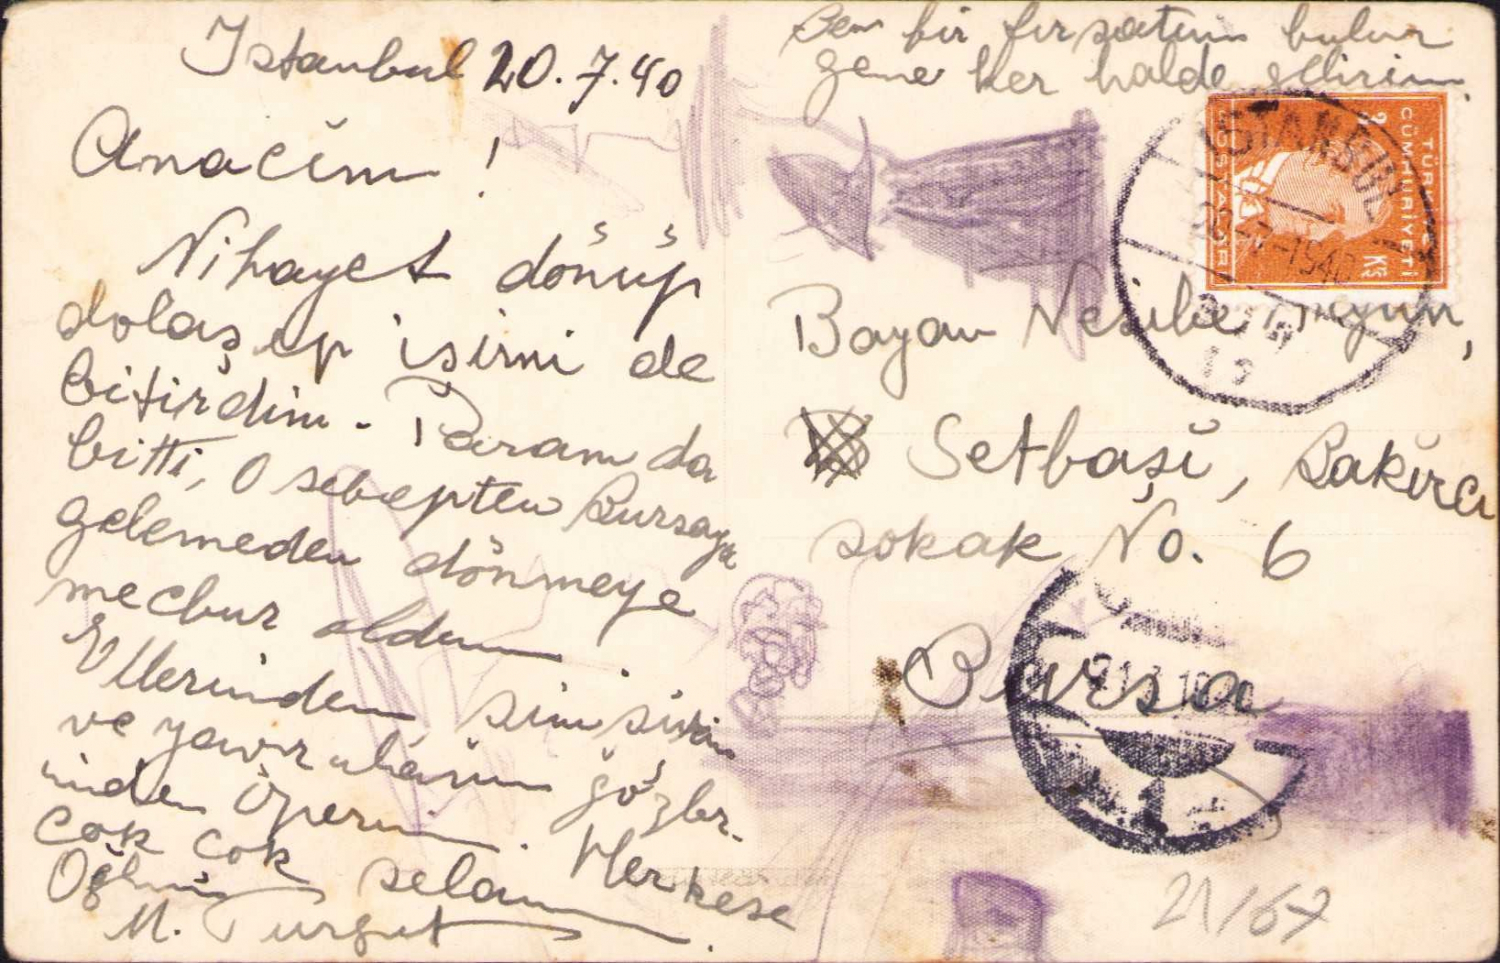 Istanbul 20.7.40
Anacım!
Nihayet dönüp
dolaşıp işimi de
bitirdim. Param da
bitti, O sebepten Bursaya
gelemeden dönmeye
mecbur oldum.
Ellerinden, sımsıkı
ve yavruların gözler-
inden öperim. Herkese
çok çok selam.
Oğlun
M. Turgut
Ben bir fırsatını bulur
gene her halde gelirim.
TÜRKİYE
CÜMHURİYETİ
POSTALARI
3 Ks
ISTANBUL
Bayan Nesibe
Setbaşı, Bakırcı
sokak No. 6
Bursa
21/67